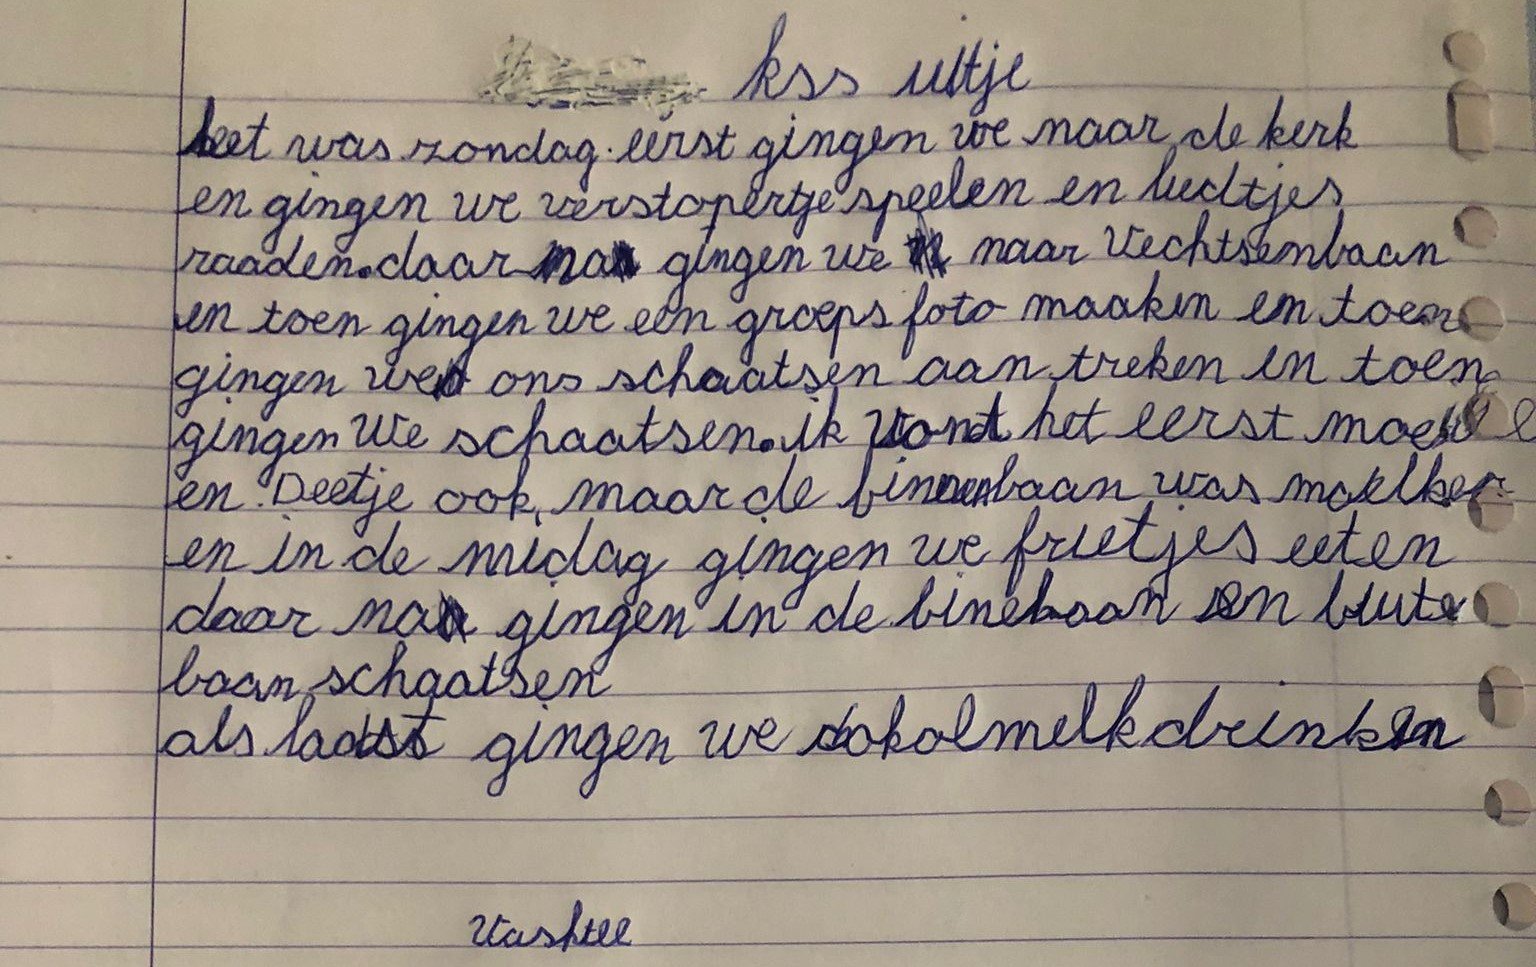 kss uitje
het was zondag. eerst gingen we naar de kerk
en gingen we verstopertje speelen en liedtjes
raaden. daar na gingen we naar Vechtsenbaan
en toen gingen we een groeps foto maaken en toen
gingen we ons schaatsen aan treken en toen
gingen we schaatsen. ik vond het eerst
en Deetje ook, maar de binnenbaan was maklker
en in de midag gingen we frietjes eeten
daar na gingen in de binebaan en biute
baan schaatsen
als laatst gingen we sokolmelk drinken